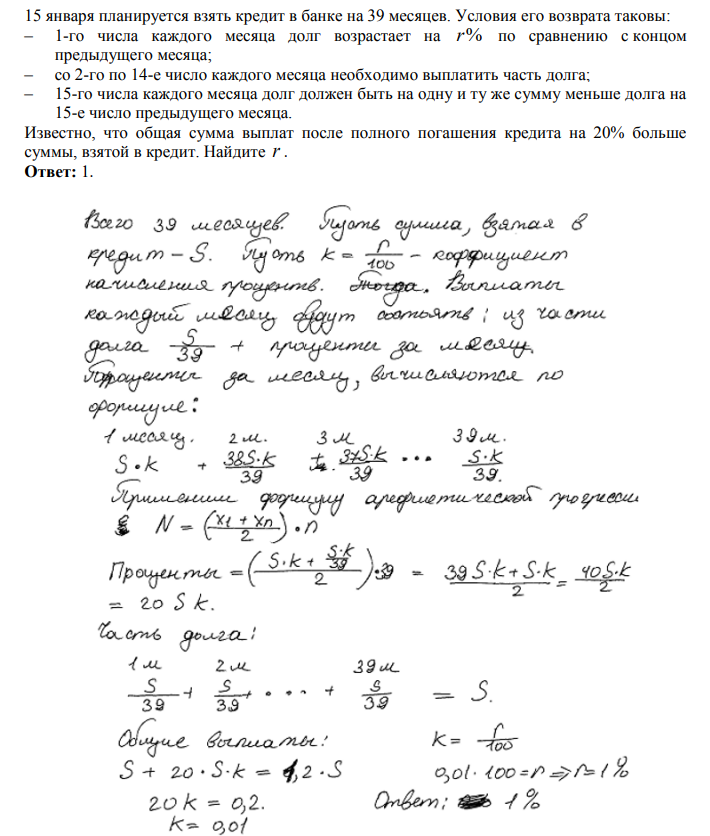 15 января планируется взять кредит в банке на 39 месяцев. Условия его возврата таковы:
– 1-го числа каждого месяца долг возрастает на r% по сравнению с концом
предыдущего месяца;
– со 2-го по 14-е число каждого месяца необходимо выплатить часть долга;
– 15-го числа каждого месяца долг должен быть на одну и ту же сумму меньше долга на
15-е число предыдущего месяца.
Известно, что общая сумма выплат после полного погашения кредита на 20% больше
суммы, взятой в кредит. Найдите r .
Ответ: 1.
Всего 39 месяцев. Пусть сумма, взятая в
кредит – S. Пусть k = r/100 – коффициент
начисления процентв. Тогда. Выплаты
каждый месяц будут состоять: из части
долга S/39 + проценты за месяц.
Проценты за месяц, вычисляются по
формуле:
1 месяц. 2 м. 3 м 39 м.
S•k + 38S•k/39 + 37S•k/39 ••• S•k/39.
Применим формулу арефметической прогрессии
N = (x1 + xn/2) • n
Проценты = (S•k + S•k/39 / 2) • 39 = 39S•k + S•k/2 = 40S•k/2
= 20 S k.
Часть долга:
1 м 2 м 39 м
S/39 + S/39 + • • • + S/39 = S.
Общие выплаты: k = r/100
S + 20 • S • k = 1,2 • S 0,01 • 100 = r => r = 1%
20 k = 0,2. Ответ: 1%
k = 0,01